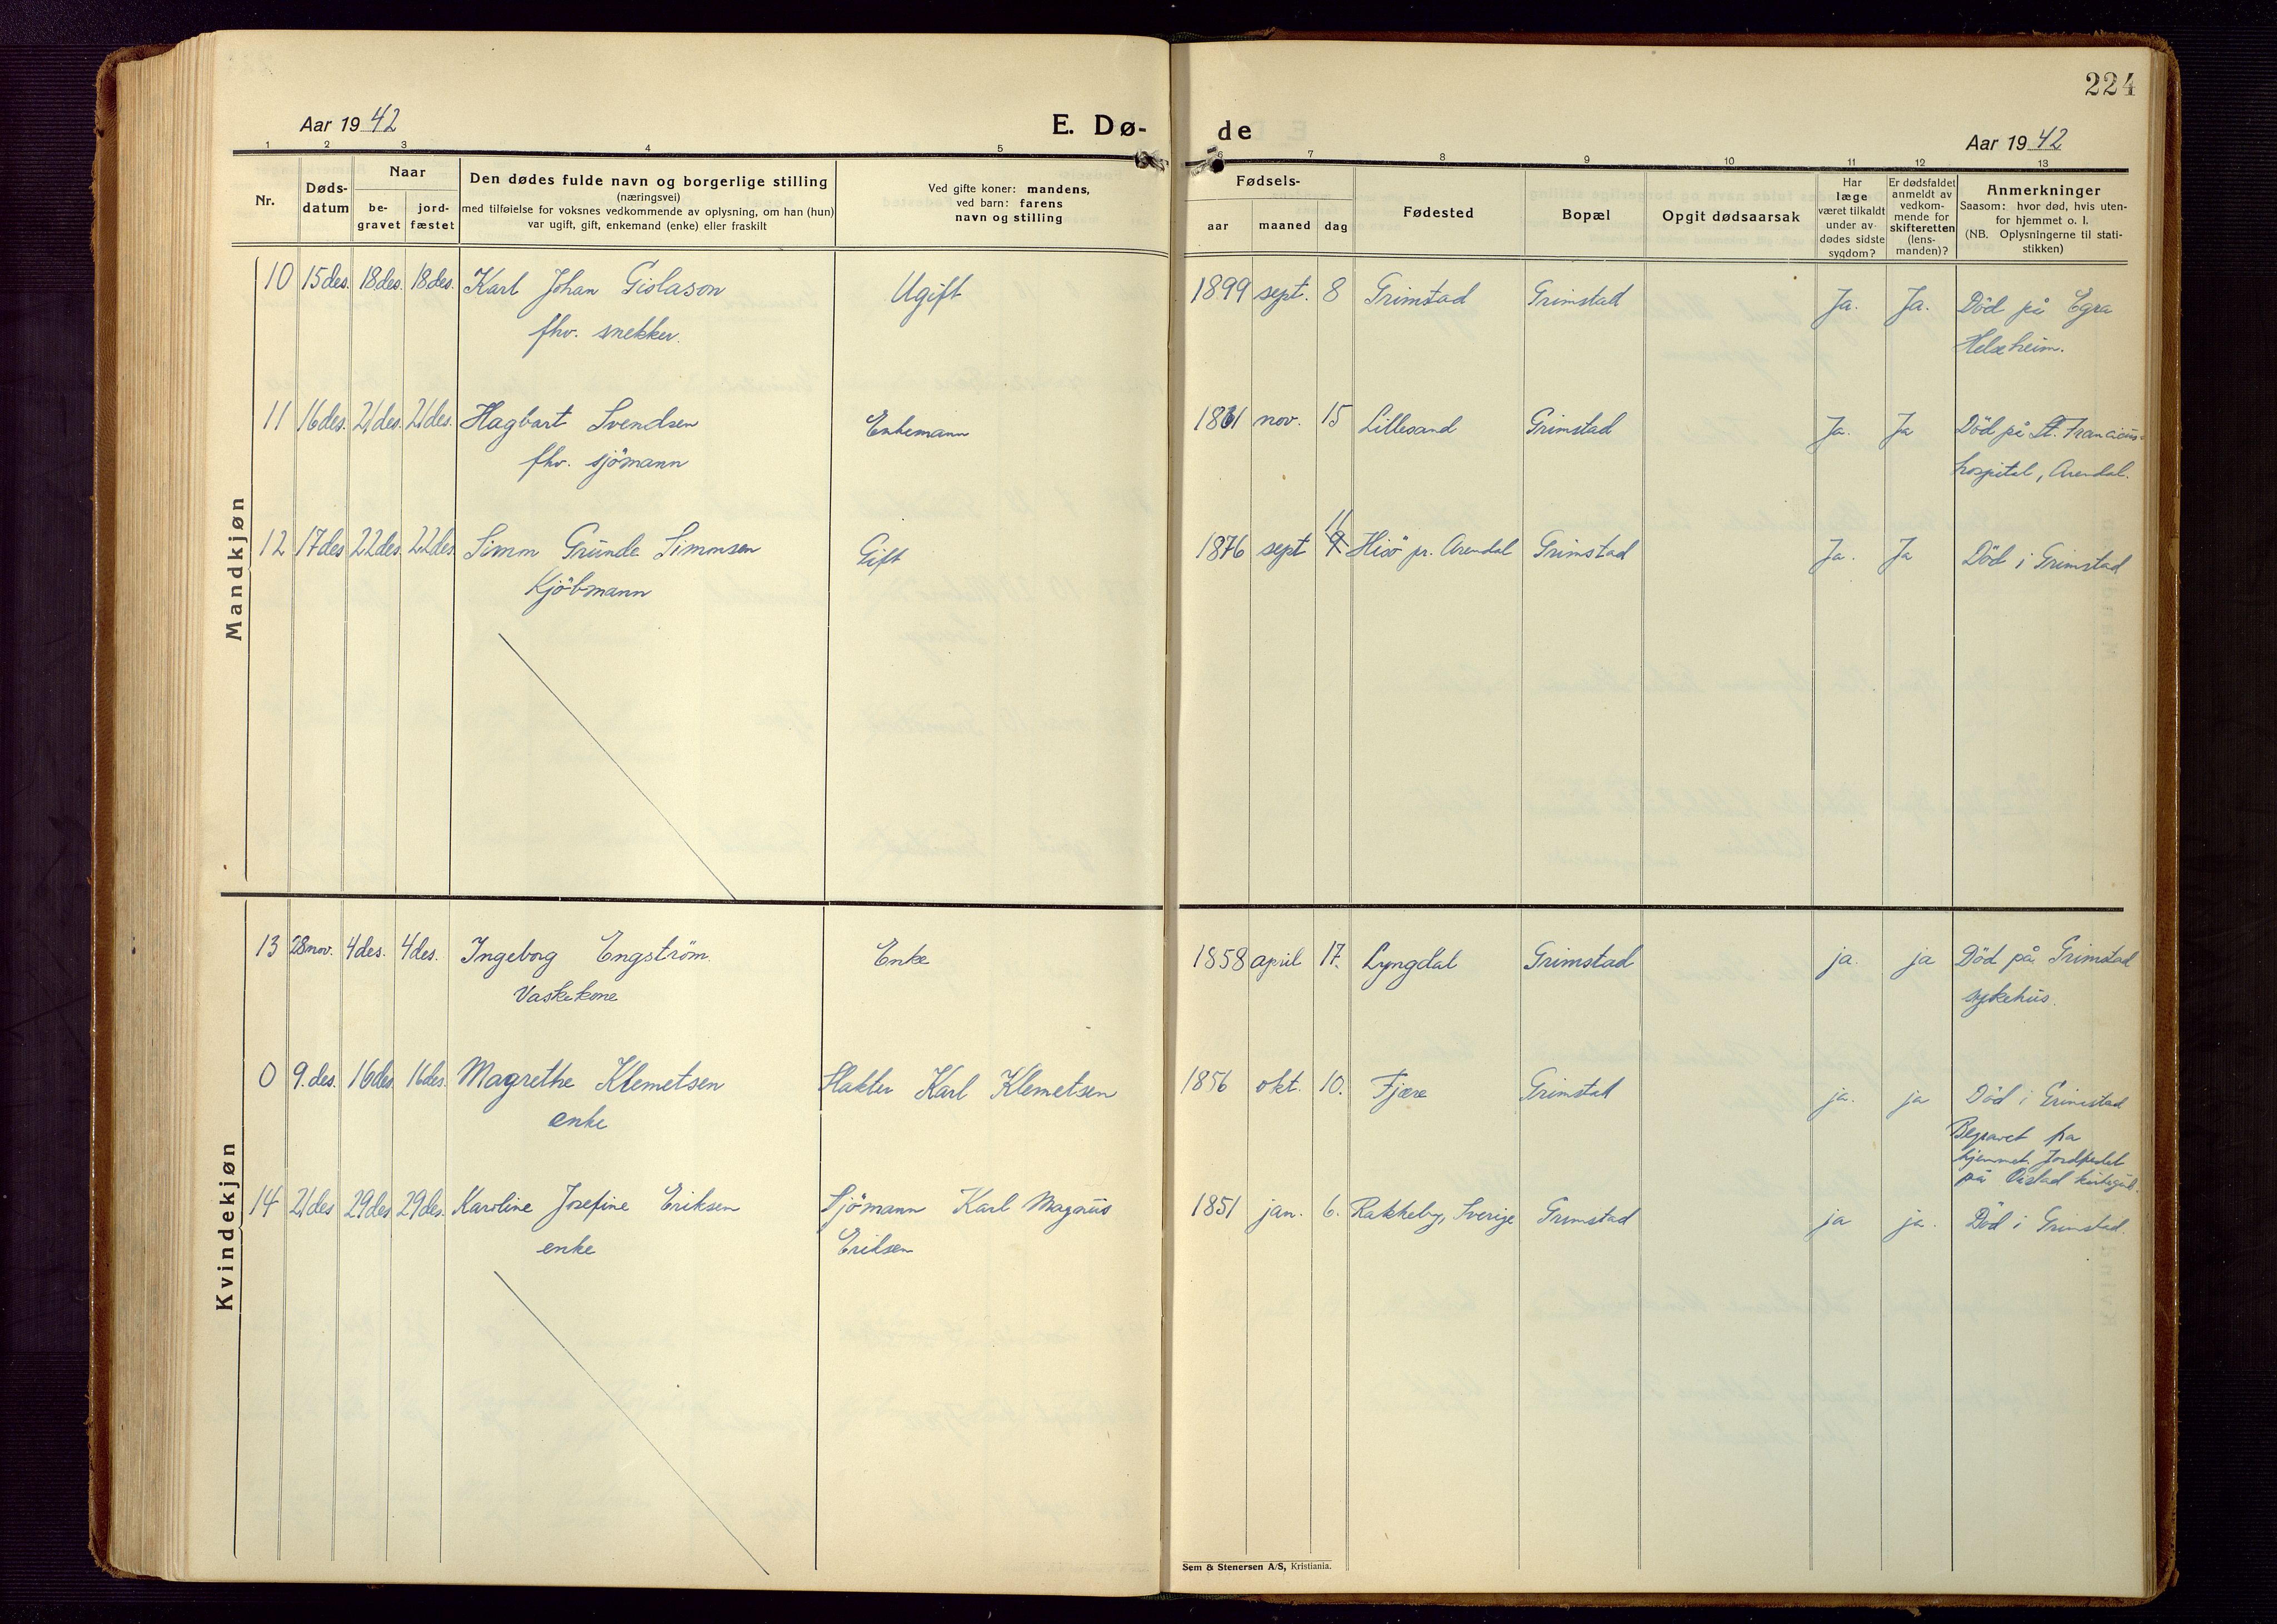 224
Aar 1942
E. Dø-
de
Aar 1942
1 2 3 4 5 6 7 8 9 10 11 12 13
Nr.
Døds-
datum
Naar
be-
gravet
jord-
fæstet
Den dødes fulde navn og borgerlige stilling
(næringsvei)
med tilføielse for voksnes vedkommende av oplysning, om han (hun)
var ugift, gift, enkemand (enke) eller fraskilt
Ved gifte koner: mandens,
ved barn: farens
navn og stilling
Fødsels-
aar maaned dag
Fødested
Bopæl
Opgit dødsaarsak
Har
læge
været tilkaldt
under av-
dødes sidste
sygdom?
Er dødsfaldet
anmeldt av
vedkom-
mende for
skifteretten
(lens-
manden)?
Anmerkninger
Saasom: hvor død, hvis uten-
for hjemmet o. l.
(NB. Oplysningerne til stati-
stikken)
Mandkjøn
10 15 des. 18 des. 18 des. Karl Johan Gislason Ugift 1899 sept. 8 Grimstad Grimstad Ja. Ja. Död på Egra
fhv. snekker. Helseheim.
11 16 des. 21 des. 21 des. Hagbart Svendsen Enkemann 1861 nov. 15 Lillesand Grimstad Ja. Ja Död på St. Franciscus-
fhv. sjömann hospital, Arendal.
11
12 17 des 22 des. 22 des. Simm Grunde Simonsen Gift 1876 sept 9 Hisö pr. Arendal Grimstad Ja. Ja Död i Grimstad
Kjöbmann
Kvindekjøn
13 28 nov. 4 des. 4 des. Ingeborg Engström. Enke 1858 april 17. Lyngdal Grimstad ja. ja Död på Grimstad
Vaskekone sykehus.
0 9. des. 16 des. 16 des. Magrethe Klemetsen Slakter Karl Klemetsen 1856 okt. 10. Fjære Grimstad ja. ja Död i Grimstad
enke Begravet fra
hjemmet. Jordfestet
på
14 21 des 29 des 29 des. Karoline Josefine Eriksen Sjömann Karl Magnus 1851 jan. 6. Rakkeby, Sverige Grimstad ja ja. Död i Grimstad.
enke Eriksen
Sem & Stenersen A/S, Kristiania.